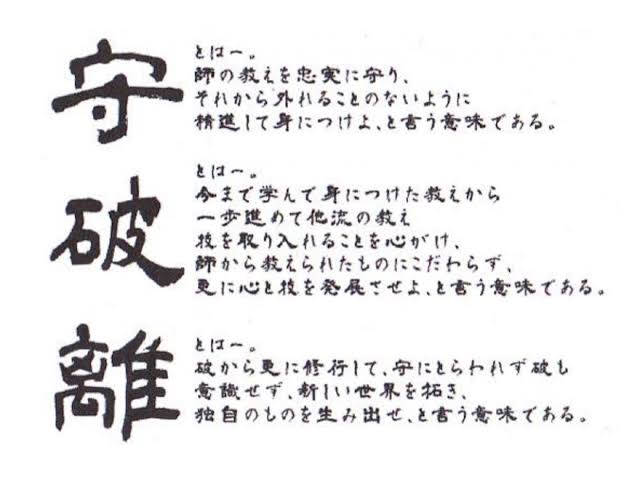 守
とはー。
師の教えを忠実に守り、
それから外れることのないように
精進して身につけよ、と言う意味である。
破
とはー。
今まで学んで身につけた教えから
一歩進めて他流の教え
技を取り入れることを心がけ、
師から教えられたものにこだわらず、
更に心と技を発展させよ、と言う意味である。
離
とはー。
破から更に修行して、守にとらわれず破も
意識せず、新しい世界を拓き、
独自のものを生み出せ、と言う意味である。